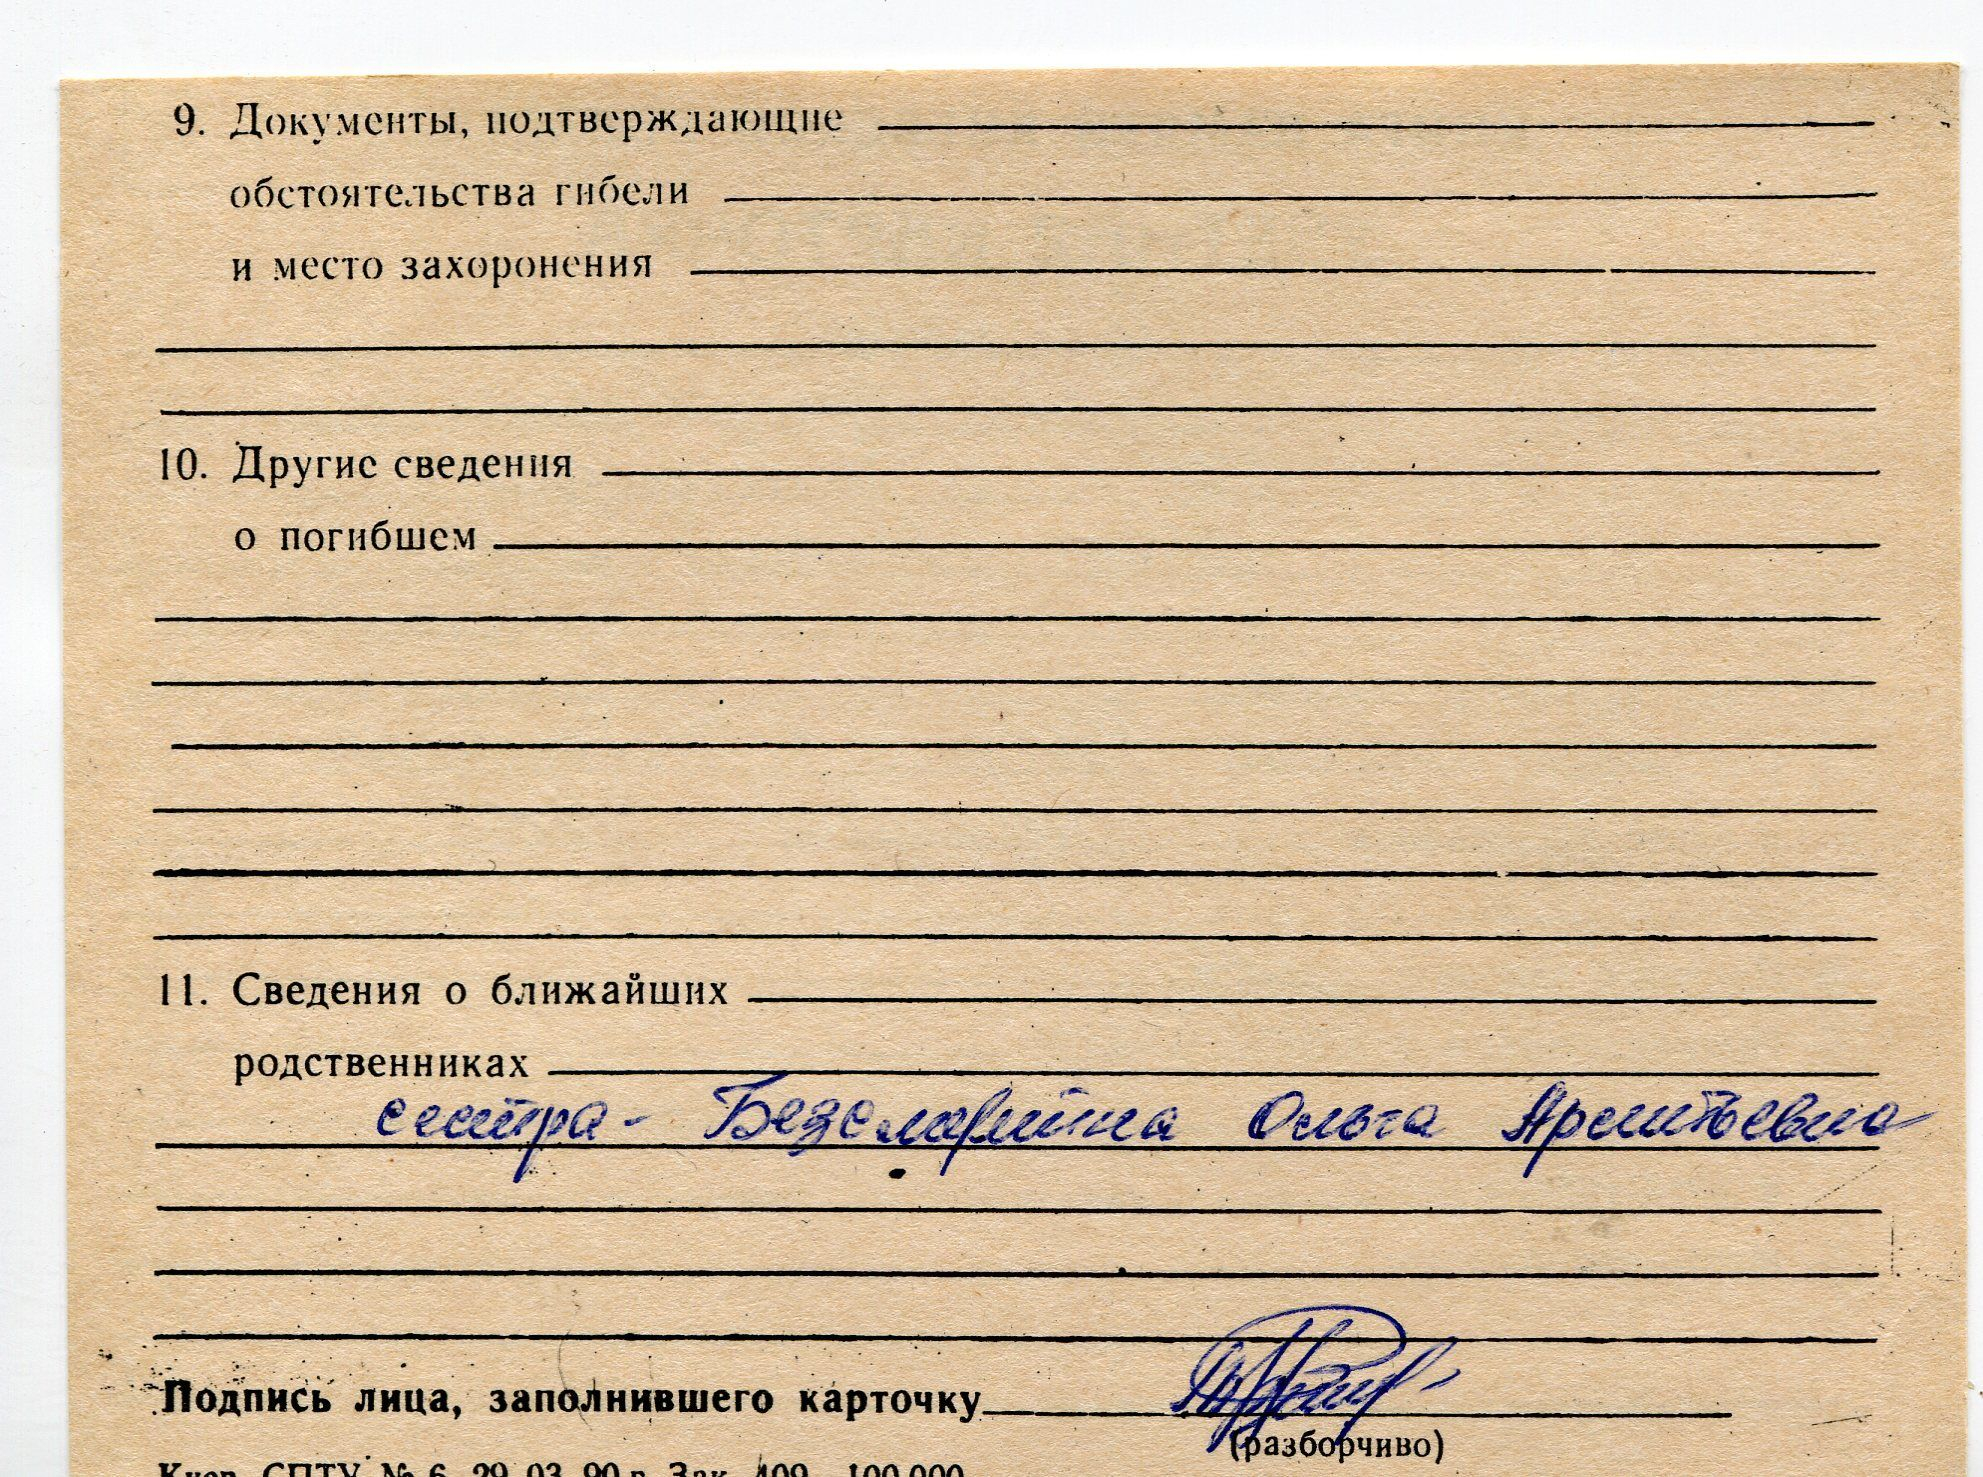 9. Документы, подтверждающие
обстоятельства гибели
и место захоронения
10. Другие сведения
о погибшем
11. Сведения о ближайших
родственниках
сестра - Ольга
Подпись лица, заполнившего карточку
(разборчиво)
СПТУ № 6 29. 03. 90 г. Зак. 409 100.000